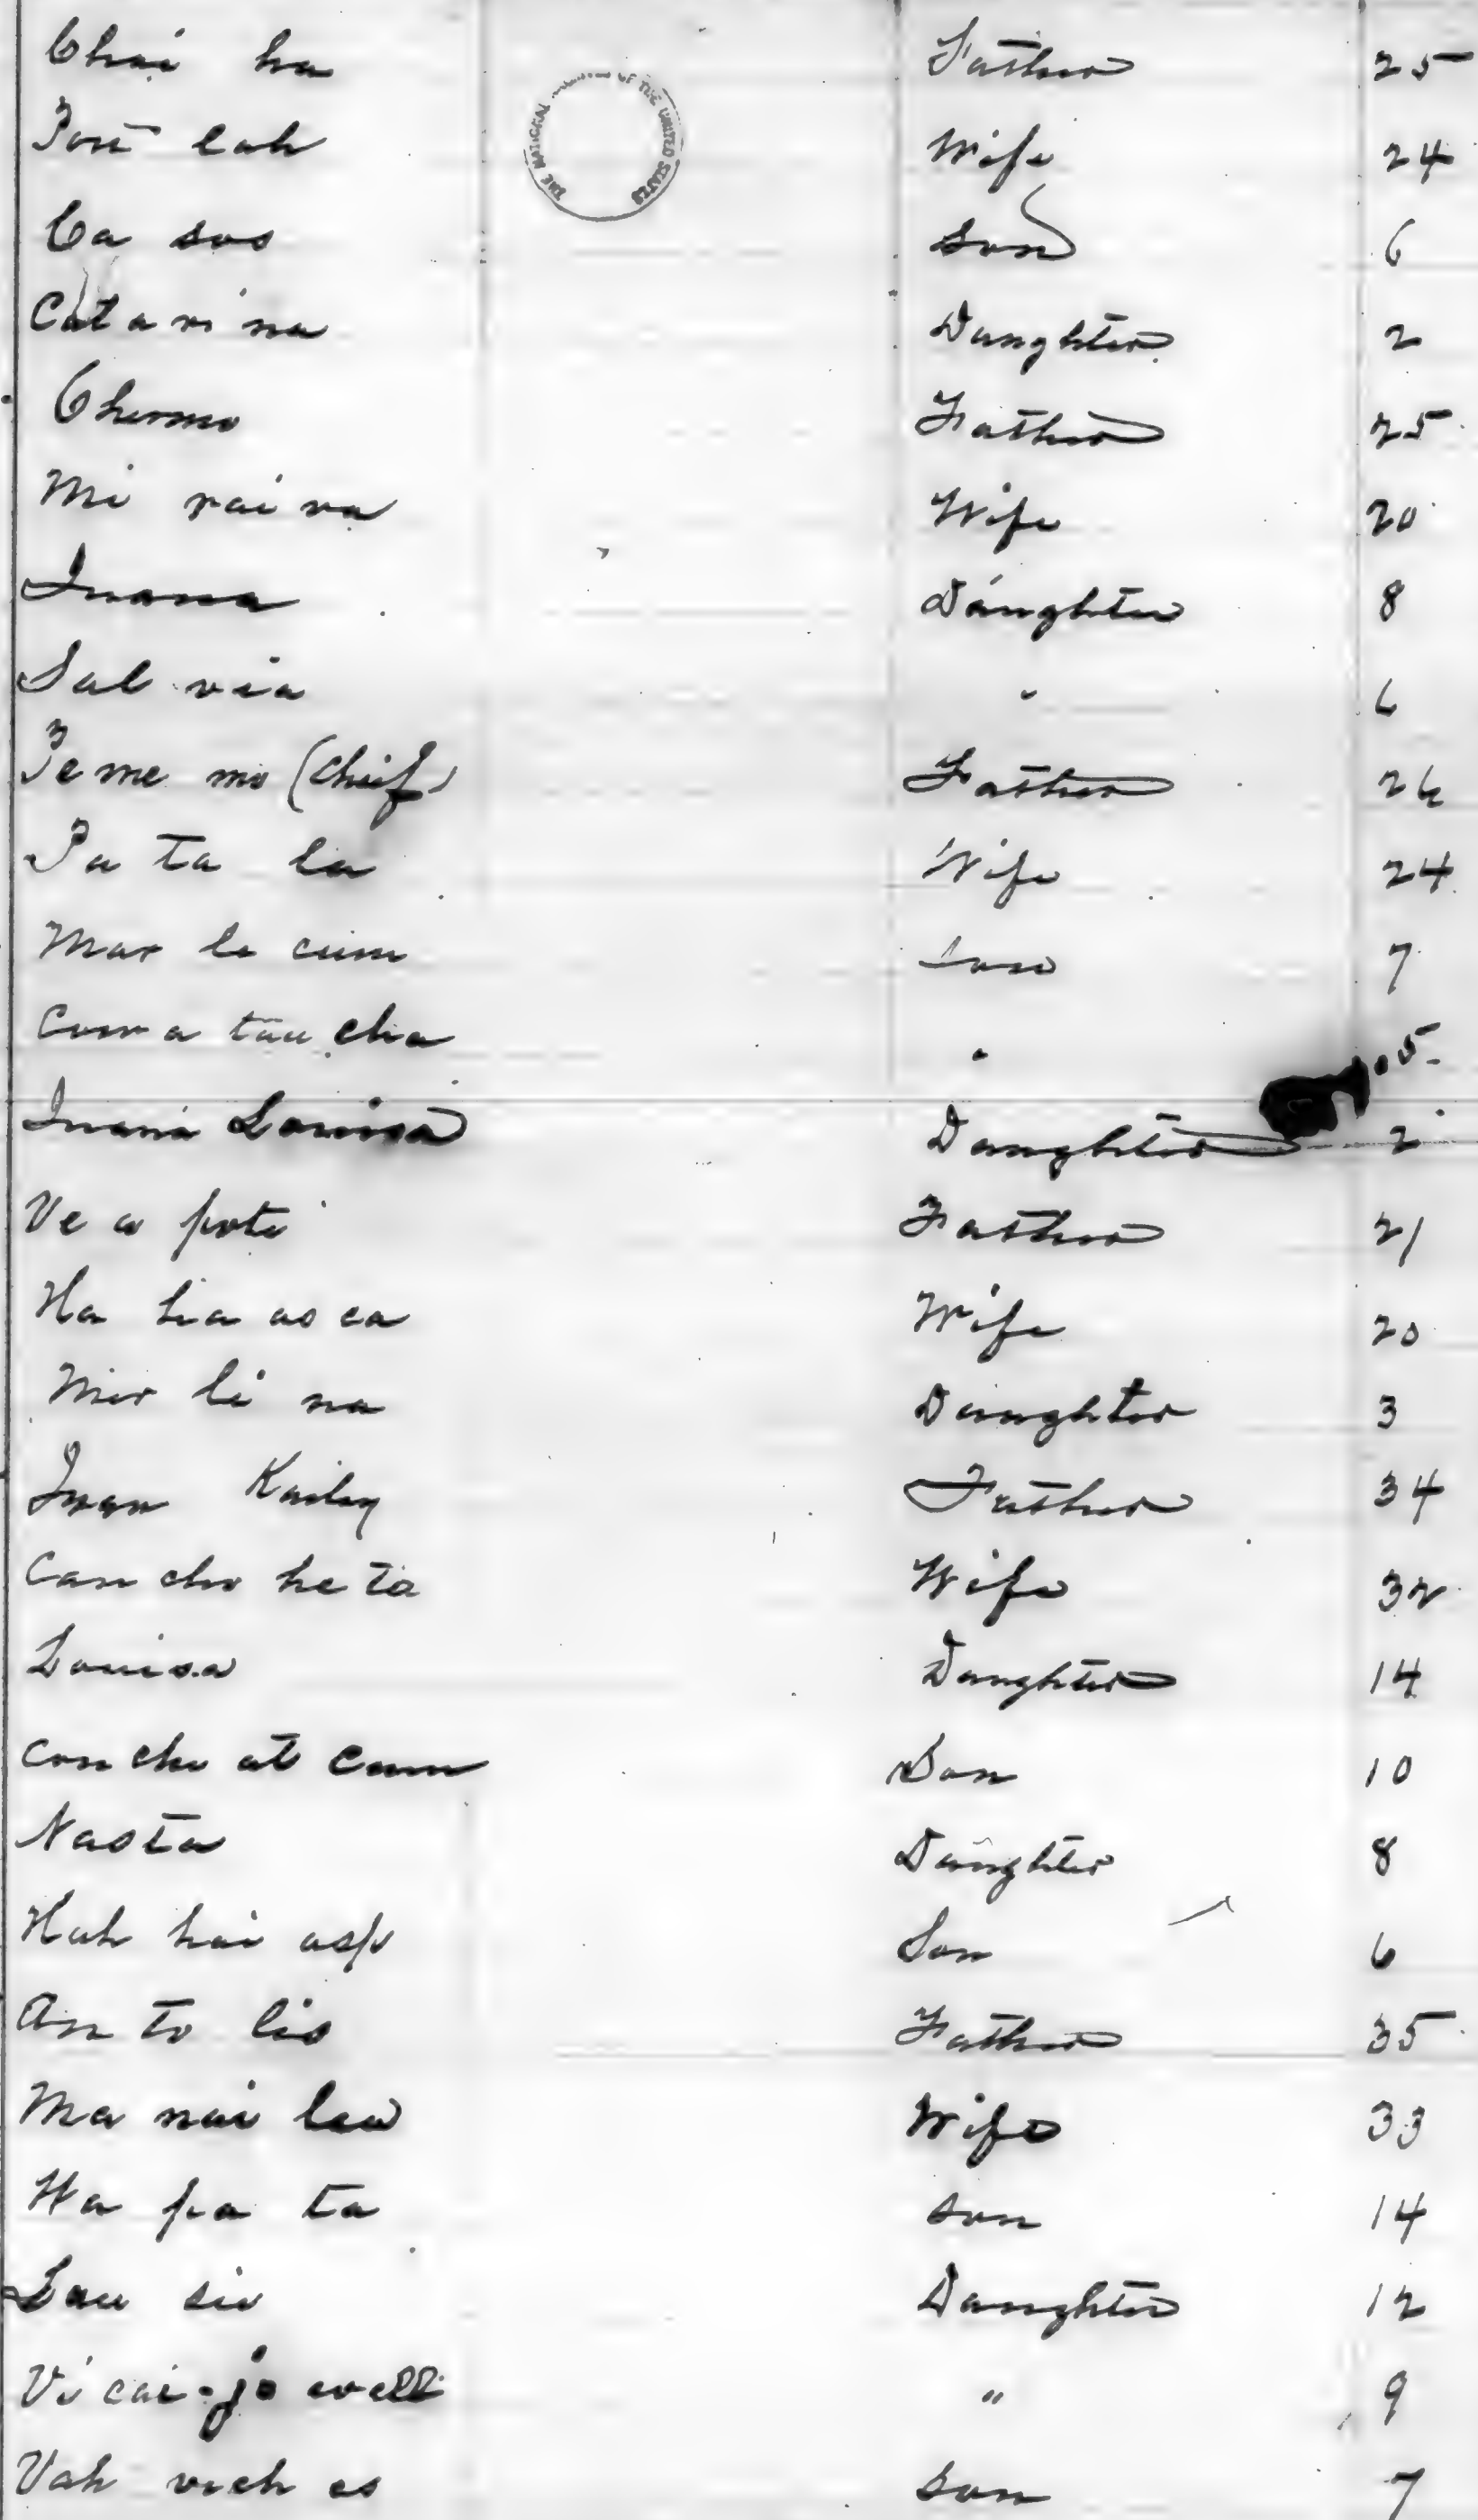 Chai ha Father 25
Pon lah Wife 24
Ca sos Son 6
Catarina Daughter 2
THE NATIONAL OF THE UNITED STATES
Chermo Father 25
Mi rai va Wife 20
Juana Daughter 8
Sal via " 6
Pe me mo (Cheif) Father 26
Pa ta la Wife 24
Mar le cum Son 7
Cow a tau cha " 5
Juana Louisa Daughter 2
Ve a pote Father 21
Ha lia as ca Wife 20
Mer li na Daughter 3
Juan Kailey Father 34
Can cho he ta Wife 32
Louisa Daughter 14
Con che at cum Son 10
Nasta Daughter 8
Hah hai asp Son 6
An to lio Father 35
Ma nai la Wife 33
Ha pa ta Son 14
Lou sie Daughter 12
Vi cai-jo well " 9
Vah vich es Son 7